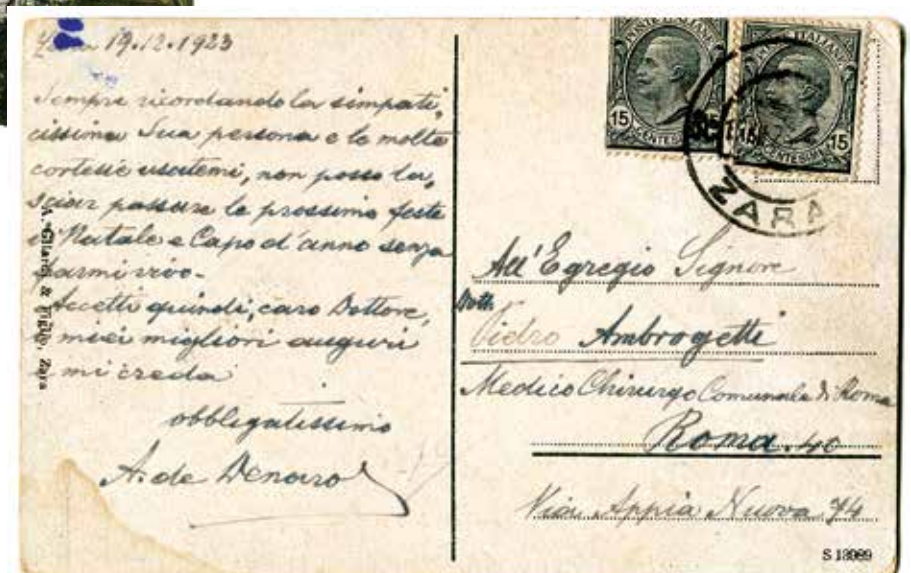 Zara 19.12.1923
Sempre ricordando la simpati,
cissima Sua persona e le molte
cortesie usatemi, non posso la,
sciar passare le prossime feste
di Natale e Capo d'anno senza
farmi vivo.-
Accetti quindi, caro Dottore,
i miei migliori auguri
e mi creda
obbligatissimo
A. de Denaro
& Figlio, Zara
POSTE ITALIANE
15 CENTESIMI 15
POSTE ITALIANE
CENTESIMI 15
ZARA
All'Egregio Signore
Dott.
Pietro Ambrogetti
Medico Chirurgo Comunale di Roma
Roma. 40
Via Appia Nuova 74
S 13989